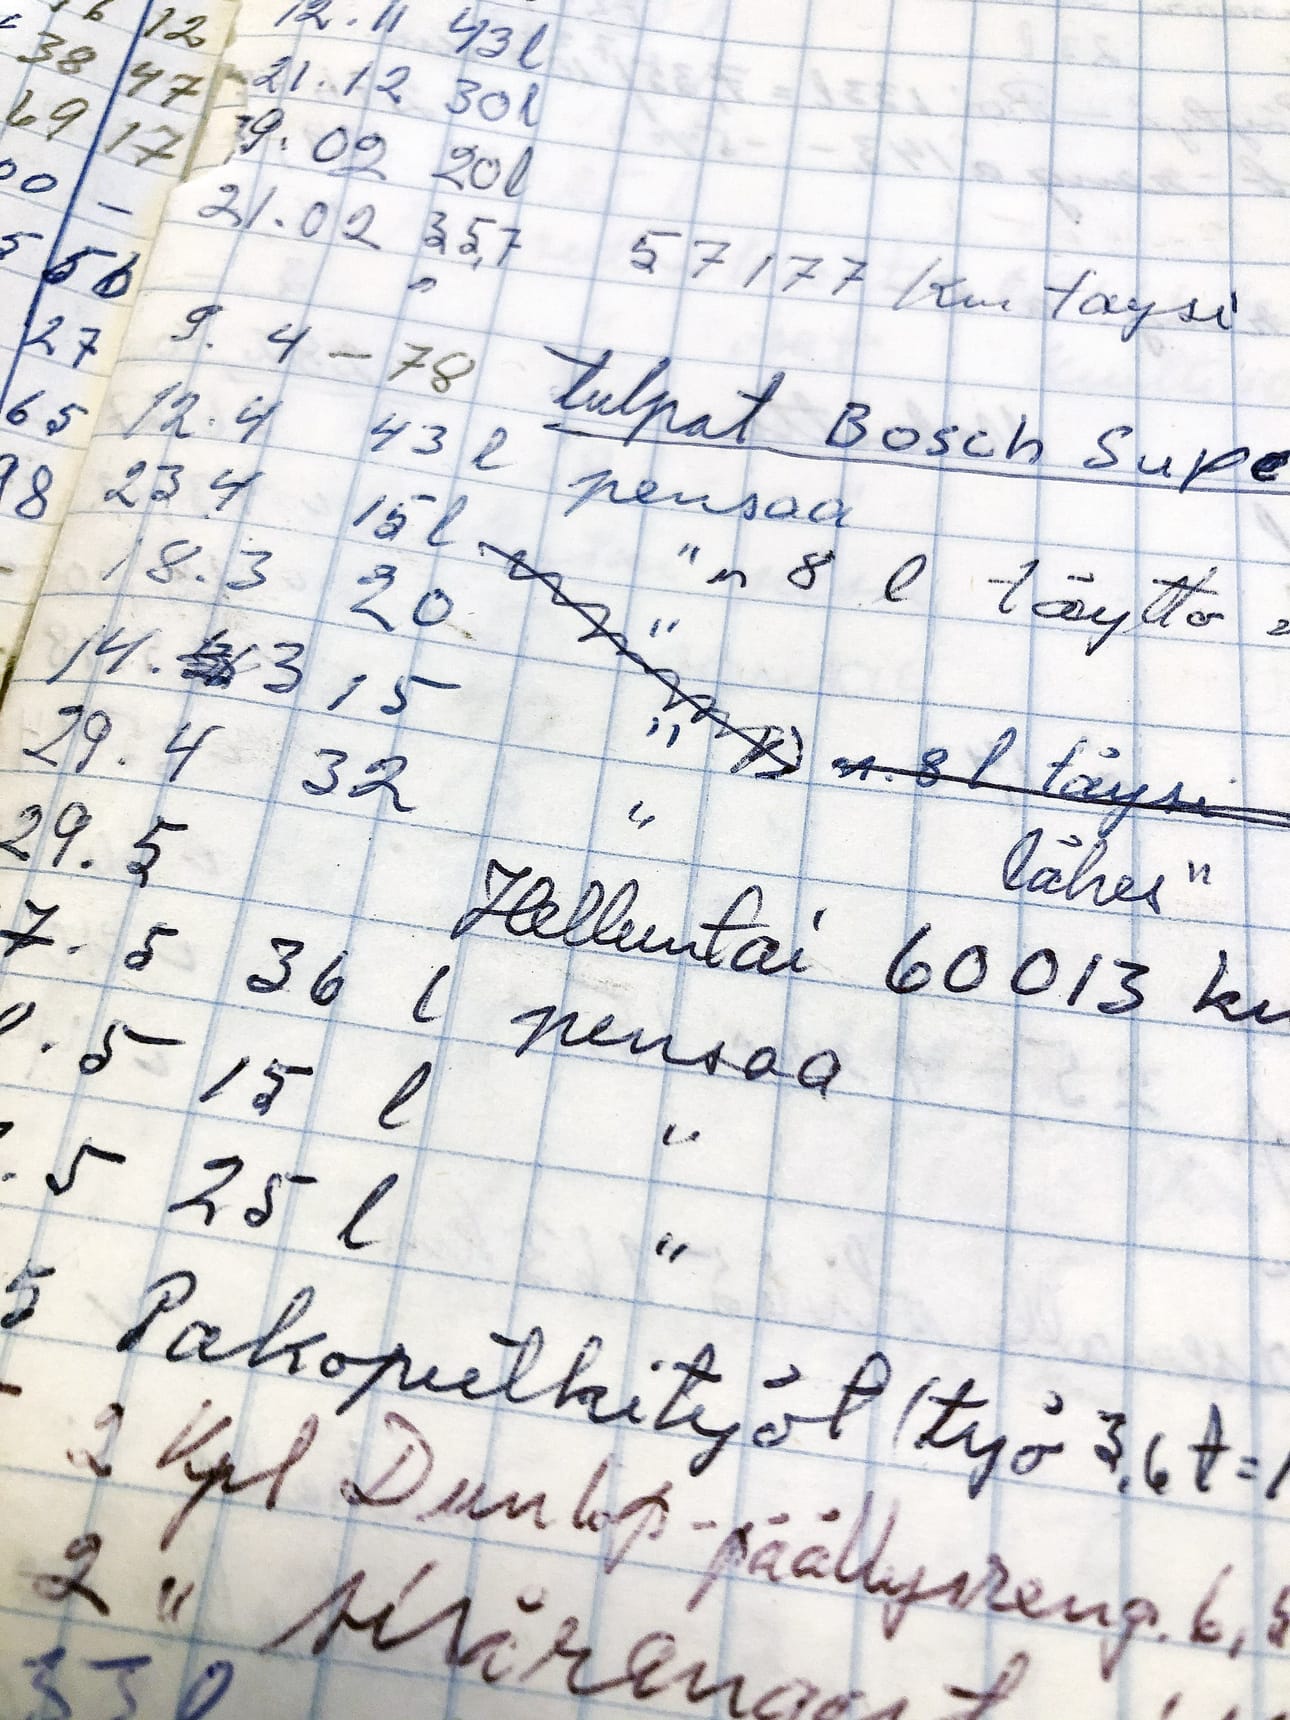 6 12
38 47
69 17
00 -
5 56
27
65
98
12.11 43l
21.12 30l
9.02 20l
21.02 35,7 57177 km täysi
"
9. 4 - 78 tulpat Bosch Supe
12.4 43 l pensaa
23 4 15l " n 8 l täyttö
18.3 20 "
14. 3 15 " n. 8 l täysi
29. 4 32 " lähes "
29. 5 Helluntai 60013 km
7. 5 36 l pensaa
. 5 15 l "
. 5 25 l "
5 Pakoputkityöt (työ 3,6 t = 1
2 Kpl Dunlop-päällysreng. 6,
2 " sisärengast
33 l